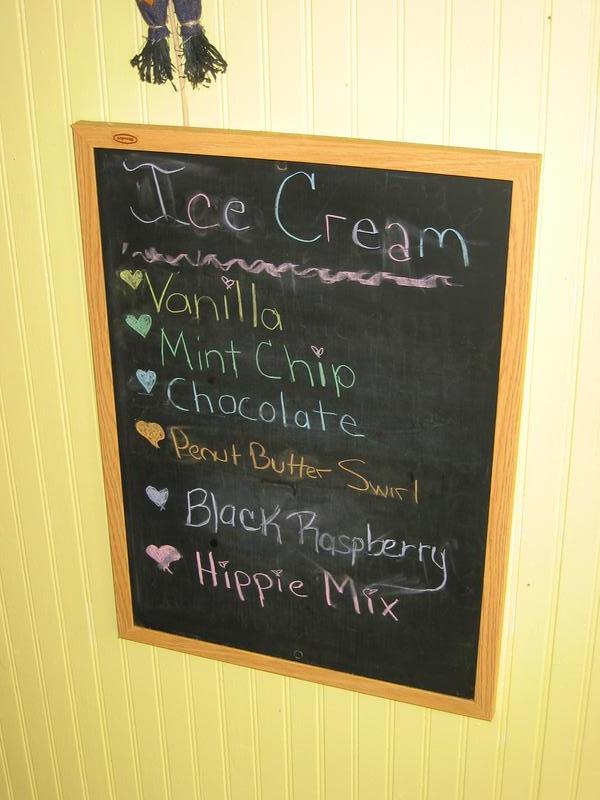 Ice Cream
Vanilla
Mint Chip
Chocolate
Penut Butter Swirl
Black Raspberry
Hippie Mix